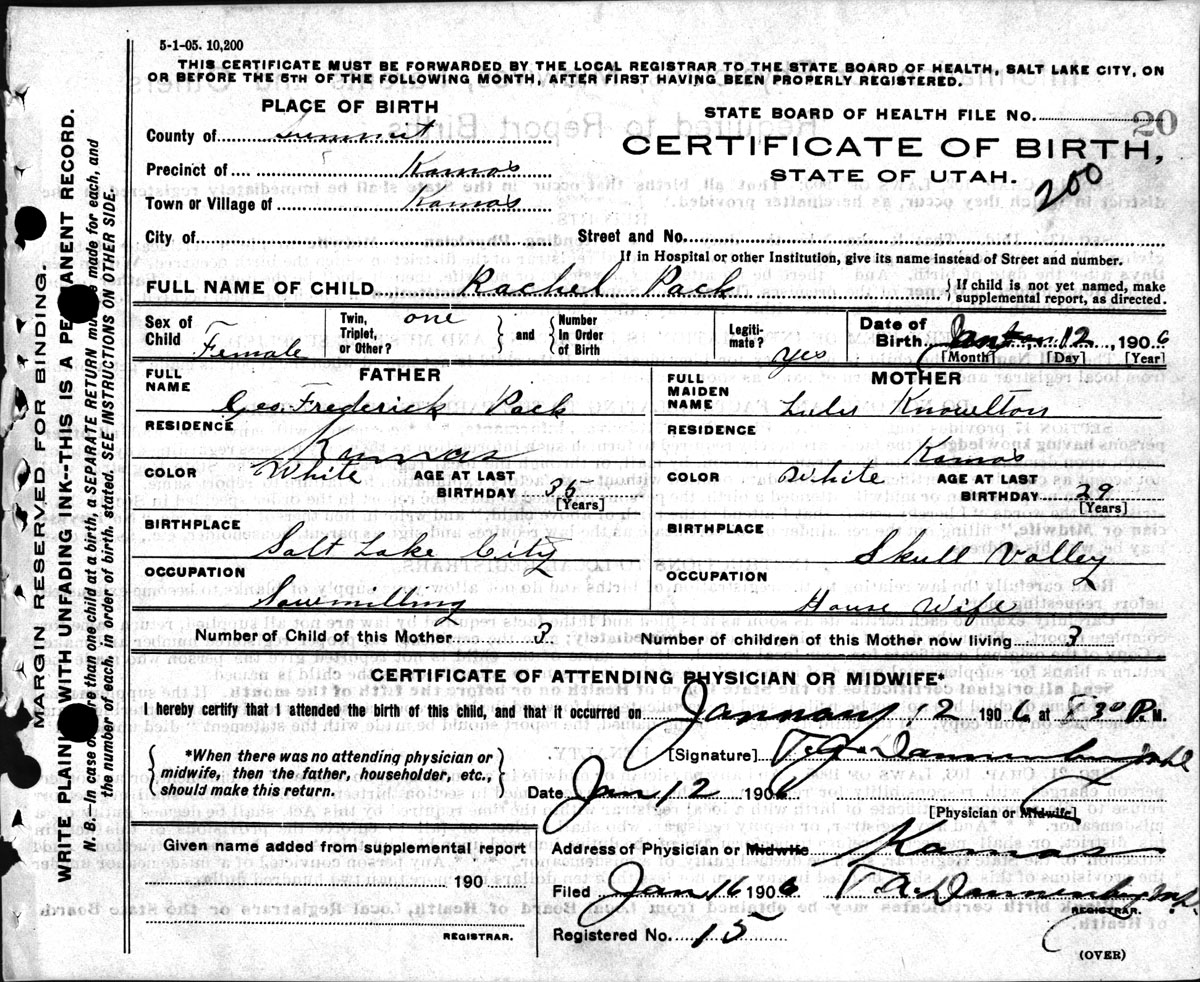 5-1-05. 10,200
THIS CERTIFICATE MUST BE FORWARDED BY THE LOCAL REGISTRAR TO THE STATE BOARD OF HEALTH, SALT LAKE CITY, ON
OR BEFORE THE 5TH OF THE FOLLOWING MONTH, AFTER FIRST HAVING BEEN PROPERLY REGISTERED.
PLACE OF BIRTH
STATE BOARD OF HEALTH FILE No. 20
County of Summit
CERTIFICATE OF BIRTH,
Precinct of Kamas
STATE OF UTAH.
200
Town or Village of Kamas
City of
Street and No.
If in Hospital or other Institution, give its name instead of Street and number.
FULL NAME OF CHILD. Rachel Pack { If child is not yet named, make
supplemental report, as directed.
Sex of Child Female
Twin, Triplet, or Other? one } and { Number In Order of Birth
Legitimate? yes
Date of Birth, Jan 12, 1906
[Month] [Day] [Year]
FATHER
FULL NAME Geo. Frederick Pack
MOTHER
FULL MAIDEN NAME Lulu Knowlton
RESIDENCE Kamas
RESIDENCE Kamas
COLOR White AGE AT LAST BIRTHDAY 35
[Years]
COLOR White AGE AT LAST BIRTHDAY 29
[Years]
BIRTHPLACE Salt Lake City
BIRTHPLACE Skull Valley
OCCUPATION Sawmilling
OCCUPATION House Wife
Number of Child of this Mother 3 Number of children of this Mother now living 3
CERTIFICATE OF ATTENDING PHYSICIAN OR MIDWIFE*
I hereby certify that I attended the birth of this child, and that it occurred on January 12 1906 at 8 30 P. M.
{ *When there was no attending physician or
midwife, then the father, householder, etc.,
should make this return. }
[Signature] Dannenberg
Date Jan 12 1906
[Physician or Midwife]
Given name added from supplemental report
190
REGISTRAR.
Address of Physician or Midwife Kamas
Filed Jan 16 1906 Dannenberg
REGISTRAR.
Registered No. 15
(OVER)
MARGIN RESERVED FOR BINDING.
WRITE PLAINLY WITH UNFADING INK--THIS IS A PERMANENT RECORD.
N. B.--In case of more than one child at a birth, a SEPARATE RETURN must be made for each, and
the number of each, in order of birth, stated. SEE INSTRUCTIONS ON OTHER SIDE.